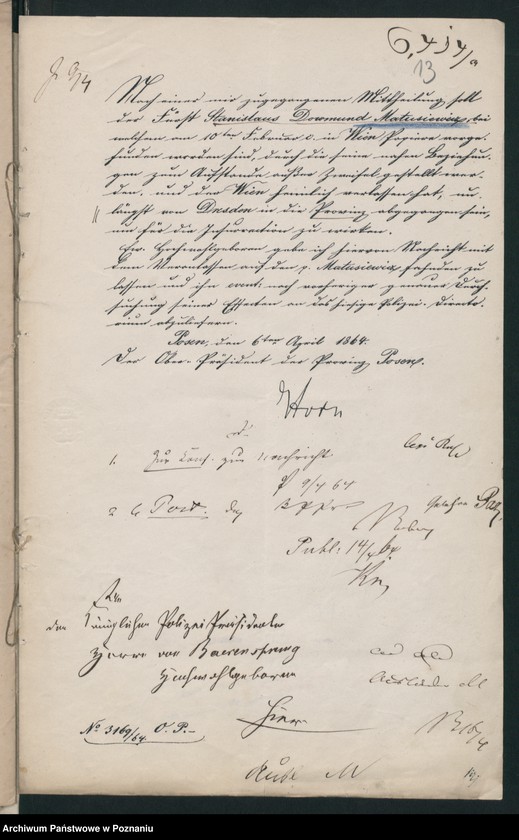 6,454/a
13
pr 9/4
Nach einer mir zugegangenen Mittheilung soll
der Fürst Stanislaus Dowmund Matusiewicz, bei
welchem am 10ten Februar c. in Wien Papiere vorge-
funden worden sind, durch die seine nahen Beziehun-
gen zum Aufstande außer Zweifel gestellt wer-
den, und der Wien heimlich verlassen hat, un-
längst von Dresden in die Provinz abgegangen sein,
um für die Insurrection zu wirken.
Ew. Hochwohlgeboren gebe ich hiervon Nachricht mit
dem Veranlassen auf den p. Matusiewicz fahnden zu
lassen und ihn event. nach vorheriger genauer Durch-
suchung seiner Effecten an das hiesige Polizei-Direkto-
rium abzuliefern.
Posen, den 6ten April 1864.
Der Ober-Präsident der Provinz Posen.
Horn
1. Zur zur Nachricht
9/4 64
2
Publ: 14/4 64
An
den Königlichen Polizei-Präsidenten
Herrn von Baerensprung
Hochwohlgeboren
Hier
No 3169/64 O. P.